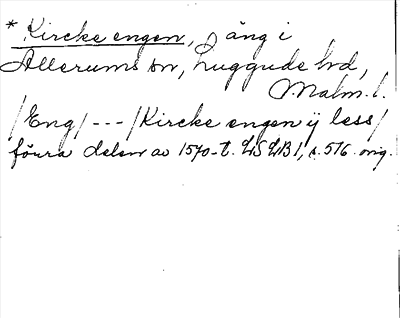 * Kircke engen, äng i
Allerums sn, Luggude hd,
Malm. l.
/Eng/ --- /Kircke engen ij less/
förra delen av 1570-t. LSLB1, s. 516 orig.